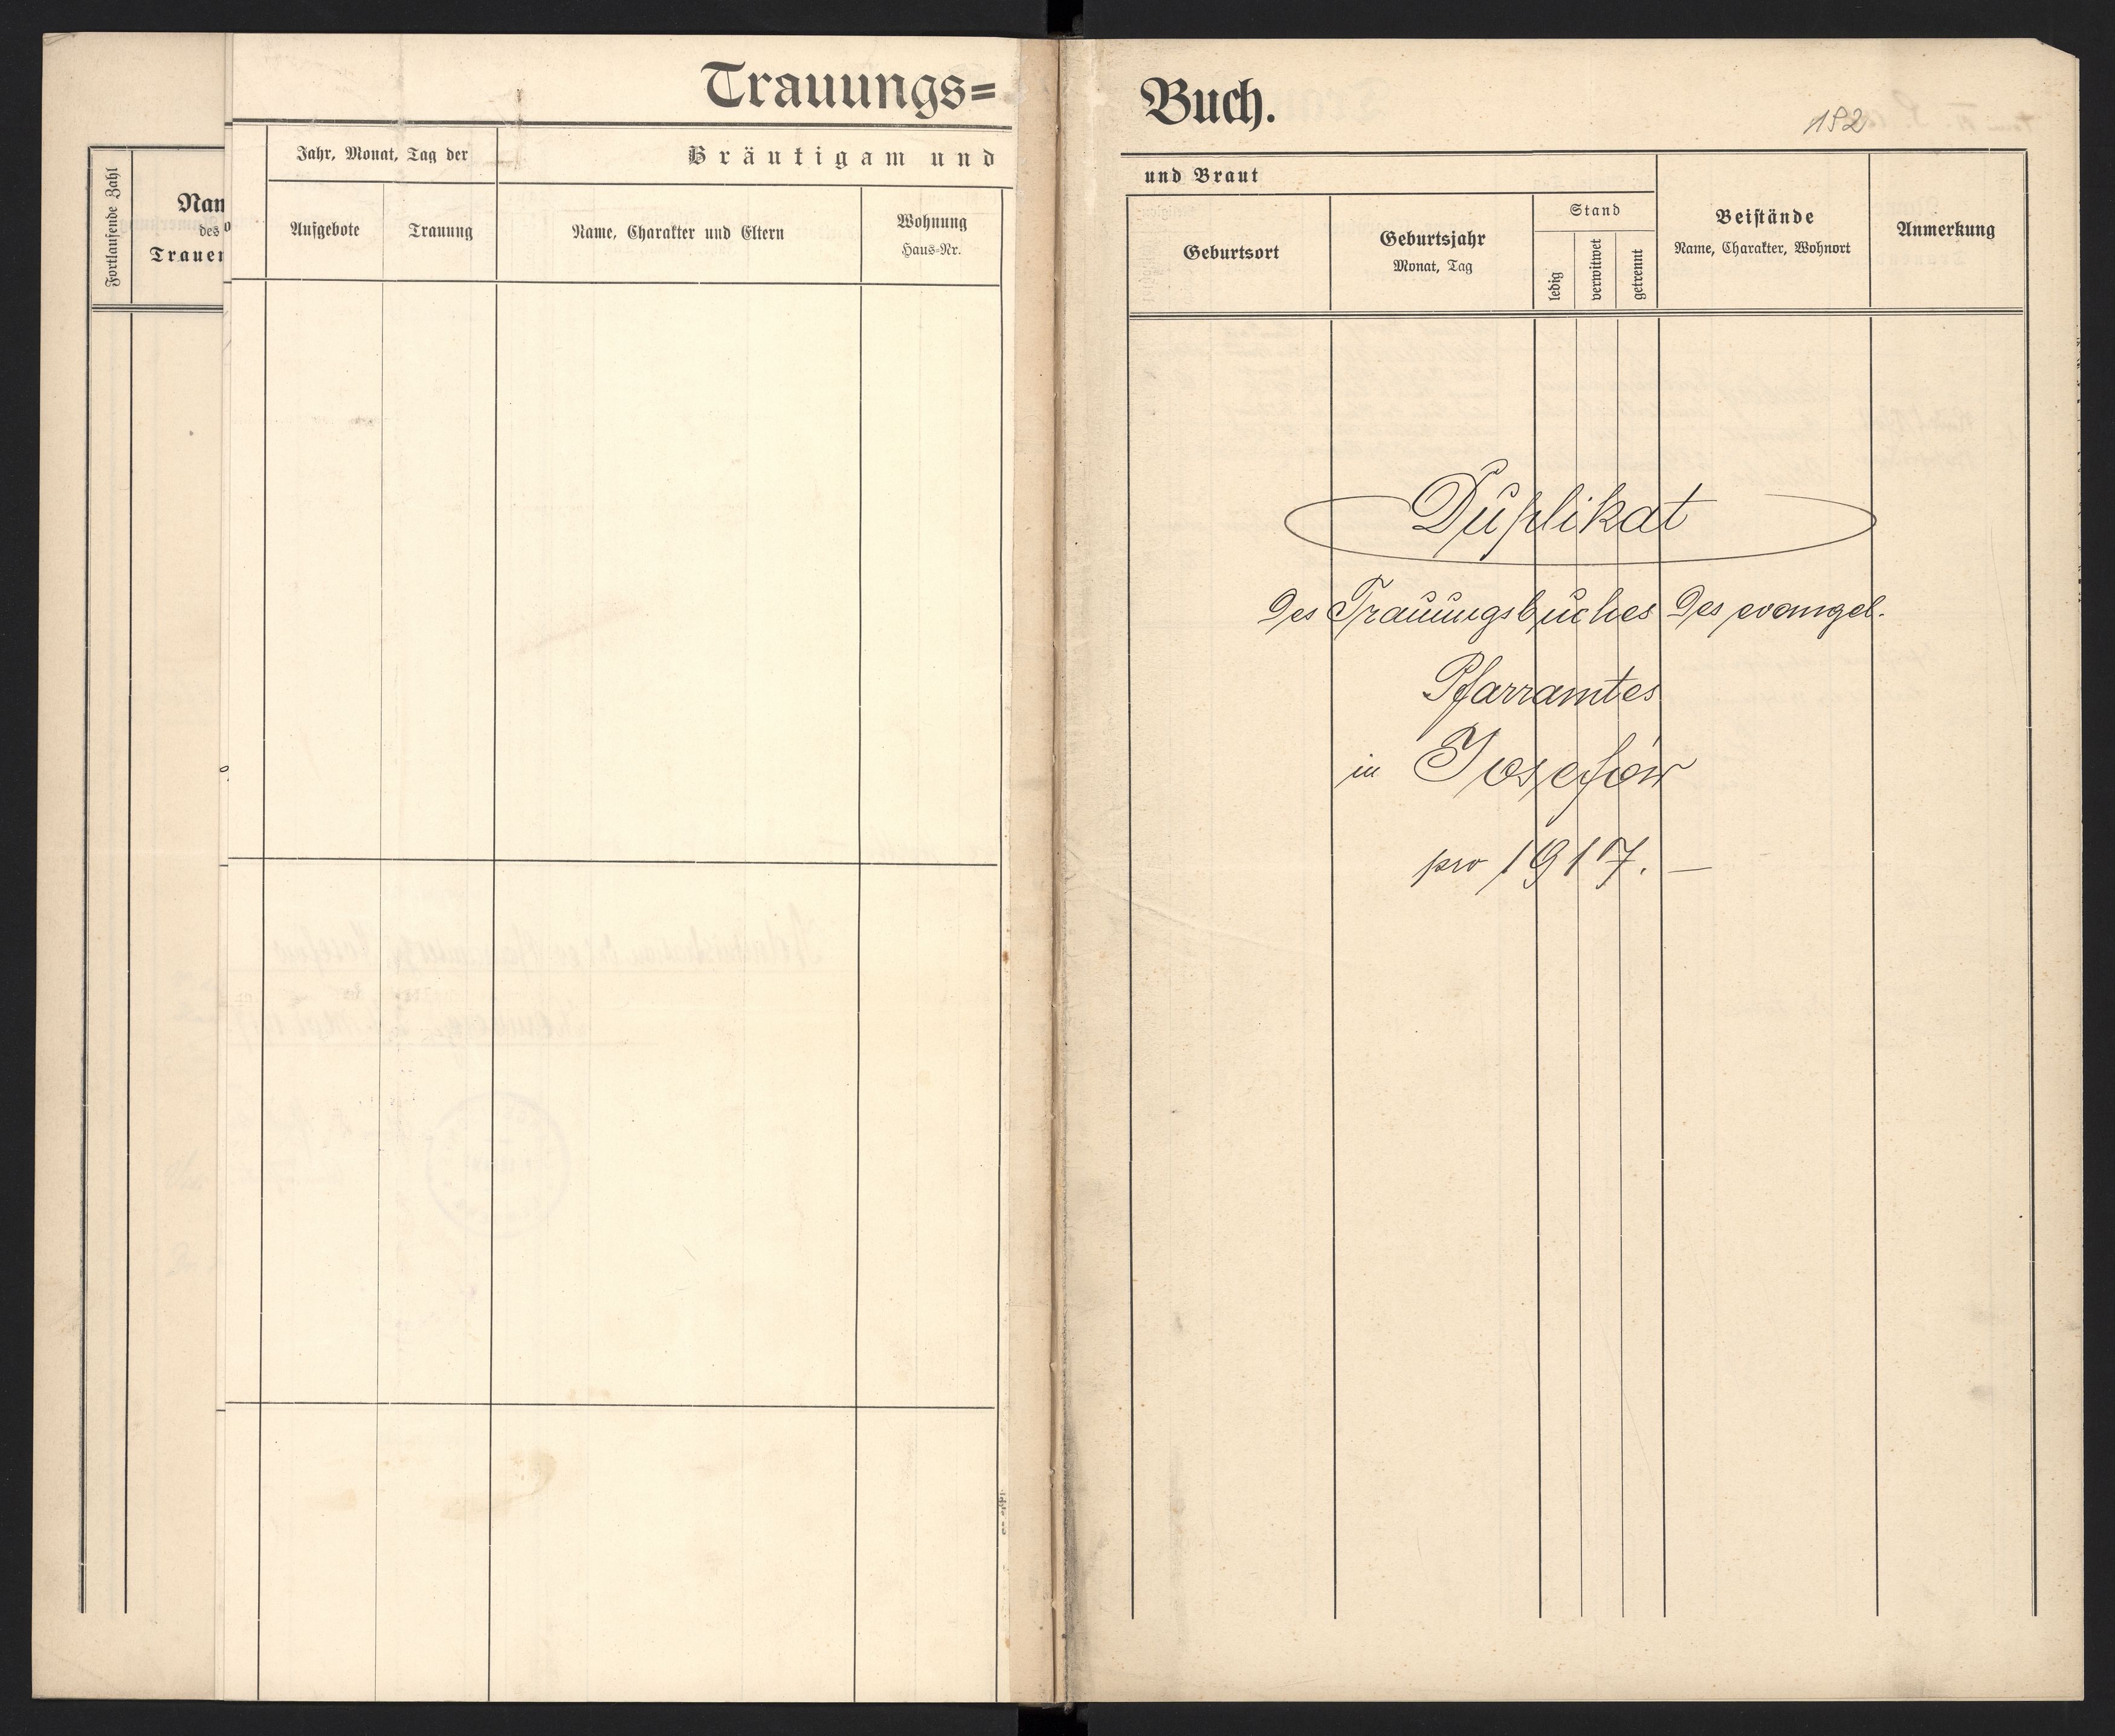 Trauungs=
Fortlaufende Zahl
Nam
des
Trauen
Jahr, Monat, Tag der
Aufgebote
Trauung
Bräutigam und
Name, Charakter und Eltern
Wohnung
Haus-Nr.
Buch.
192
und Braut
Geburtsort
Geburtsjahr
Monat, Tag
Stand
ledig
verwitwet
getrennt
Beistände
Name, Charakter, Wohnort
Anmerkung
Duplikat
des Trauungsbuches des evangel.
Pfarramtes
in Josefów
pro 1917. —